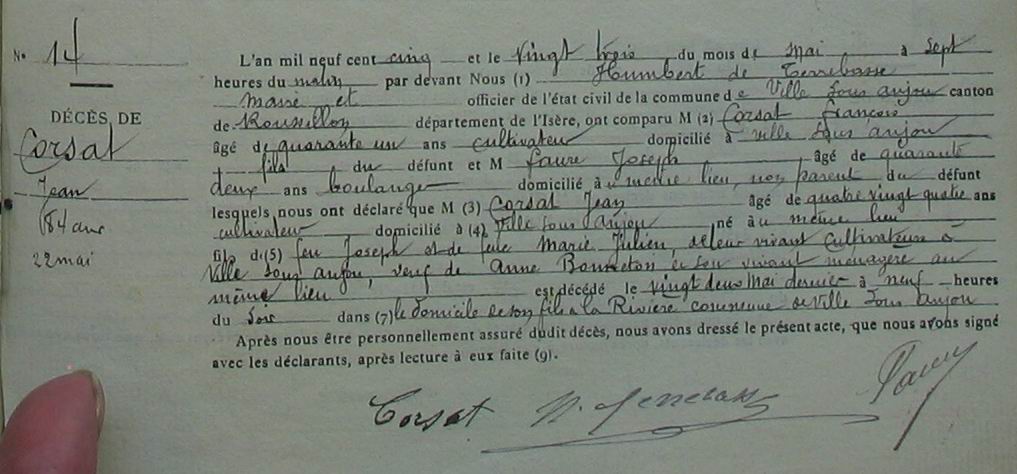 N° 14
DÉCÈS DE
Corsat
Jean
84 ans
22 mai
L'an mil neuf cent cinq et le vingt trois du mois de mai à sept
heures du matin par devant Nous (1) Humbert de Terrebasse
maire et officier de l'état civil de la commune de Ville sous anjou canton
de Roussillon département de l'Isère, ont comparu M (2) Corsat françois
âgé de quarante un ans cultivateur domicilié à ville sous anjou
fils du défunt et M faure Joseph, âgé de quarante
deux ans boulanger domicilié à u même lieu, non parent du défunt
lesquels nous ont déclaré que M (3) Corsat Jean âgé de quatre vingt quatre ans
cultivateur domicilié à (4) Ville sous anjou né à u même lieu
fils d (5) feu Joseph et de feue Marie Julien, de leur vivant cultivateurs à
Ville sous anjou, veuf de Anne Bonneton en son vivant ménagère au
même lieu est décédé le vingt deux Mai dernier à neuf heures
du soir dans (7) le domicile de son fils à la Rivière commune de Ville sous anjou
Après nous être personnellement assuré dudit décès, nous avons dressé le présent acte, que nous avons signé
avec les déclarants, après lecture à eux faite (9).
Corsat H. de Terrebasse Faure